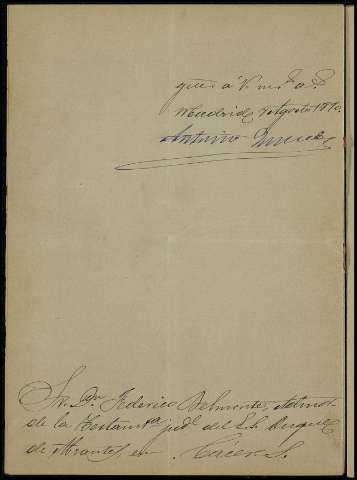 que á V. m. a.
Madrid, Agosto 1890.
Antonio
Sr. Dn. Federico Belmonte, Admor.
de la Testamta. judl. del S. S. Duque
de Abrantes en Cáceres.